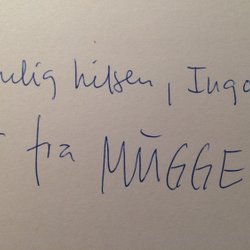 nlig hilsen, Ingo
fra MÙGGE